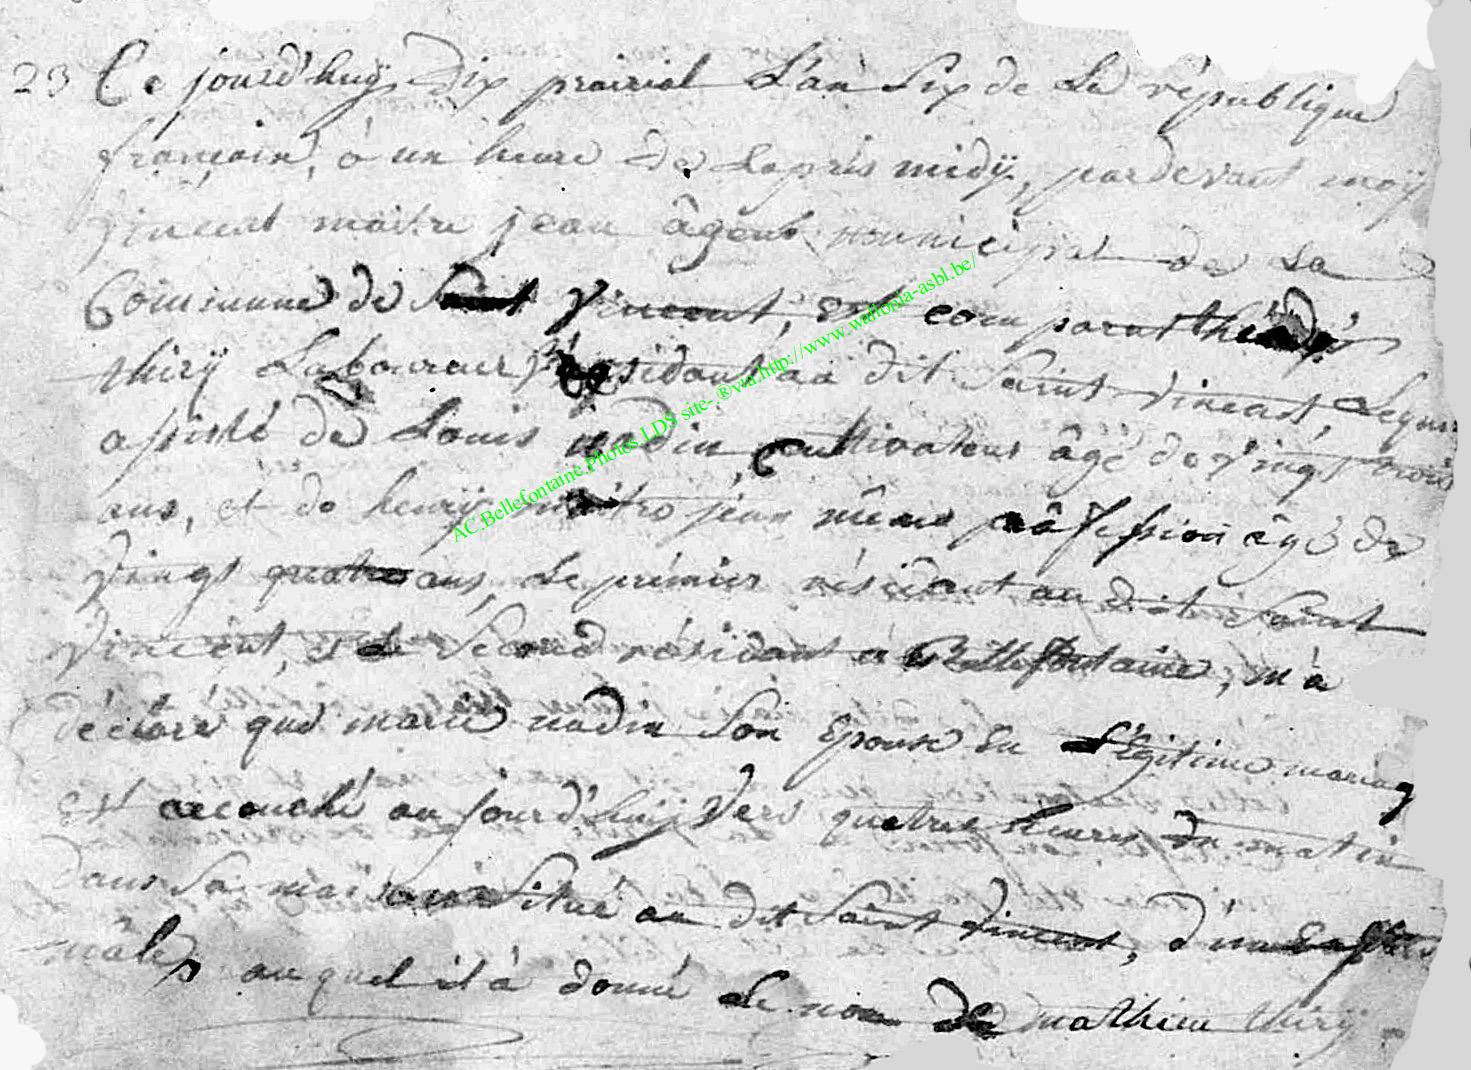 23 Ce jourd'huÿ Dix prairial L'an Six de La république
françoise, à un heure de Laprès midÿ, pardevant moÿ
vincent maitre jean âgent municipal de La
Commune de Saint Vincent, Est comparut
thirÿ Laboureur résidant au dit Saint vincent, Lequel
assisté de Louis nadin Cultivateur âgé de vingt trois
ans, et de henrÿ maitre jean même proffession âgé de
vingt quatre ans, Le premier résidant au dit Saint
vincent, et Le Second résidant à Bellefontaine, m'à
déclaré que marie nadin Son Epouse En Légitime mariag
Est accouché au jourd'huÿ Vers quatre heures du matin
dans Sa maison Situé au dit Saint vincent, d'un Enfant
mâle, au quel il à donné Le nom de mathieu thirÿ
AC.Bellefontaine.Photos LDS site-®via.http://www.wallonia-asbl.be/